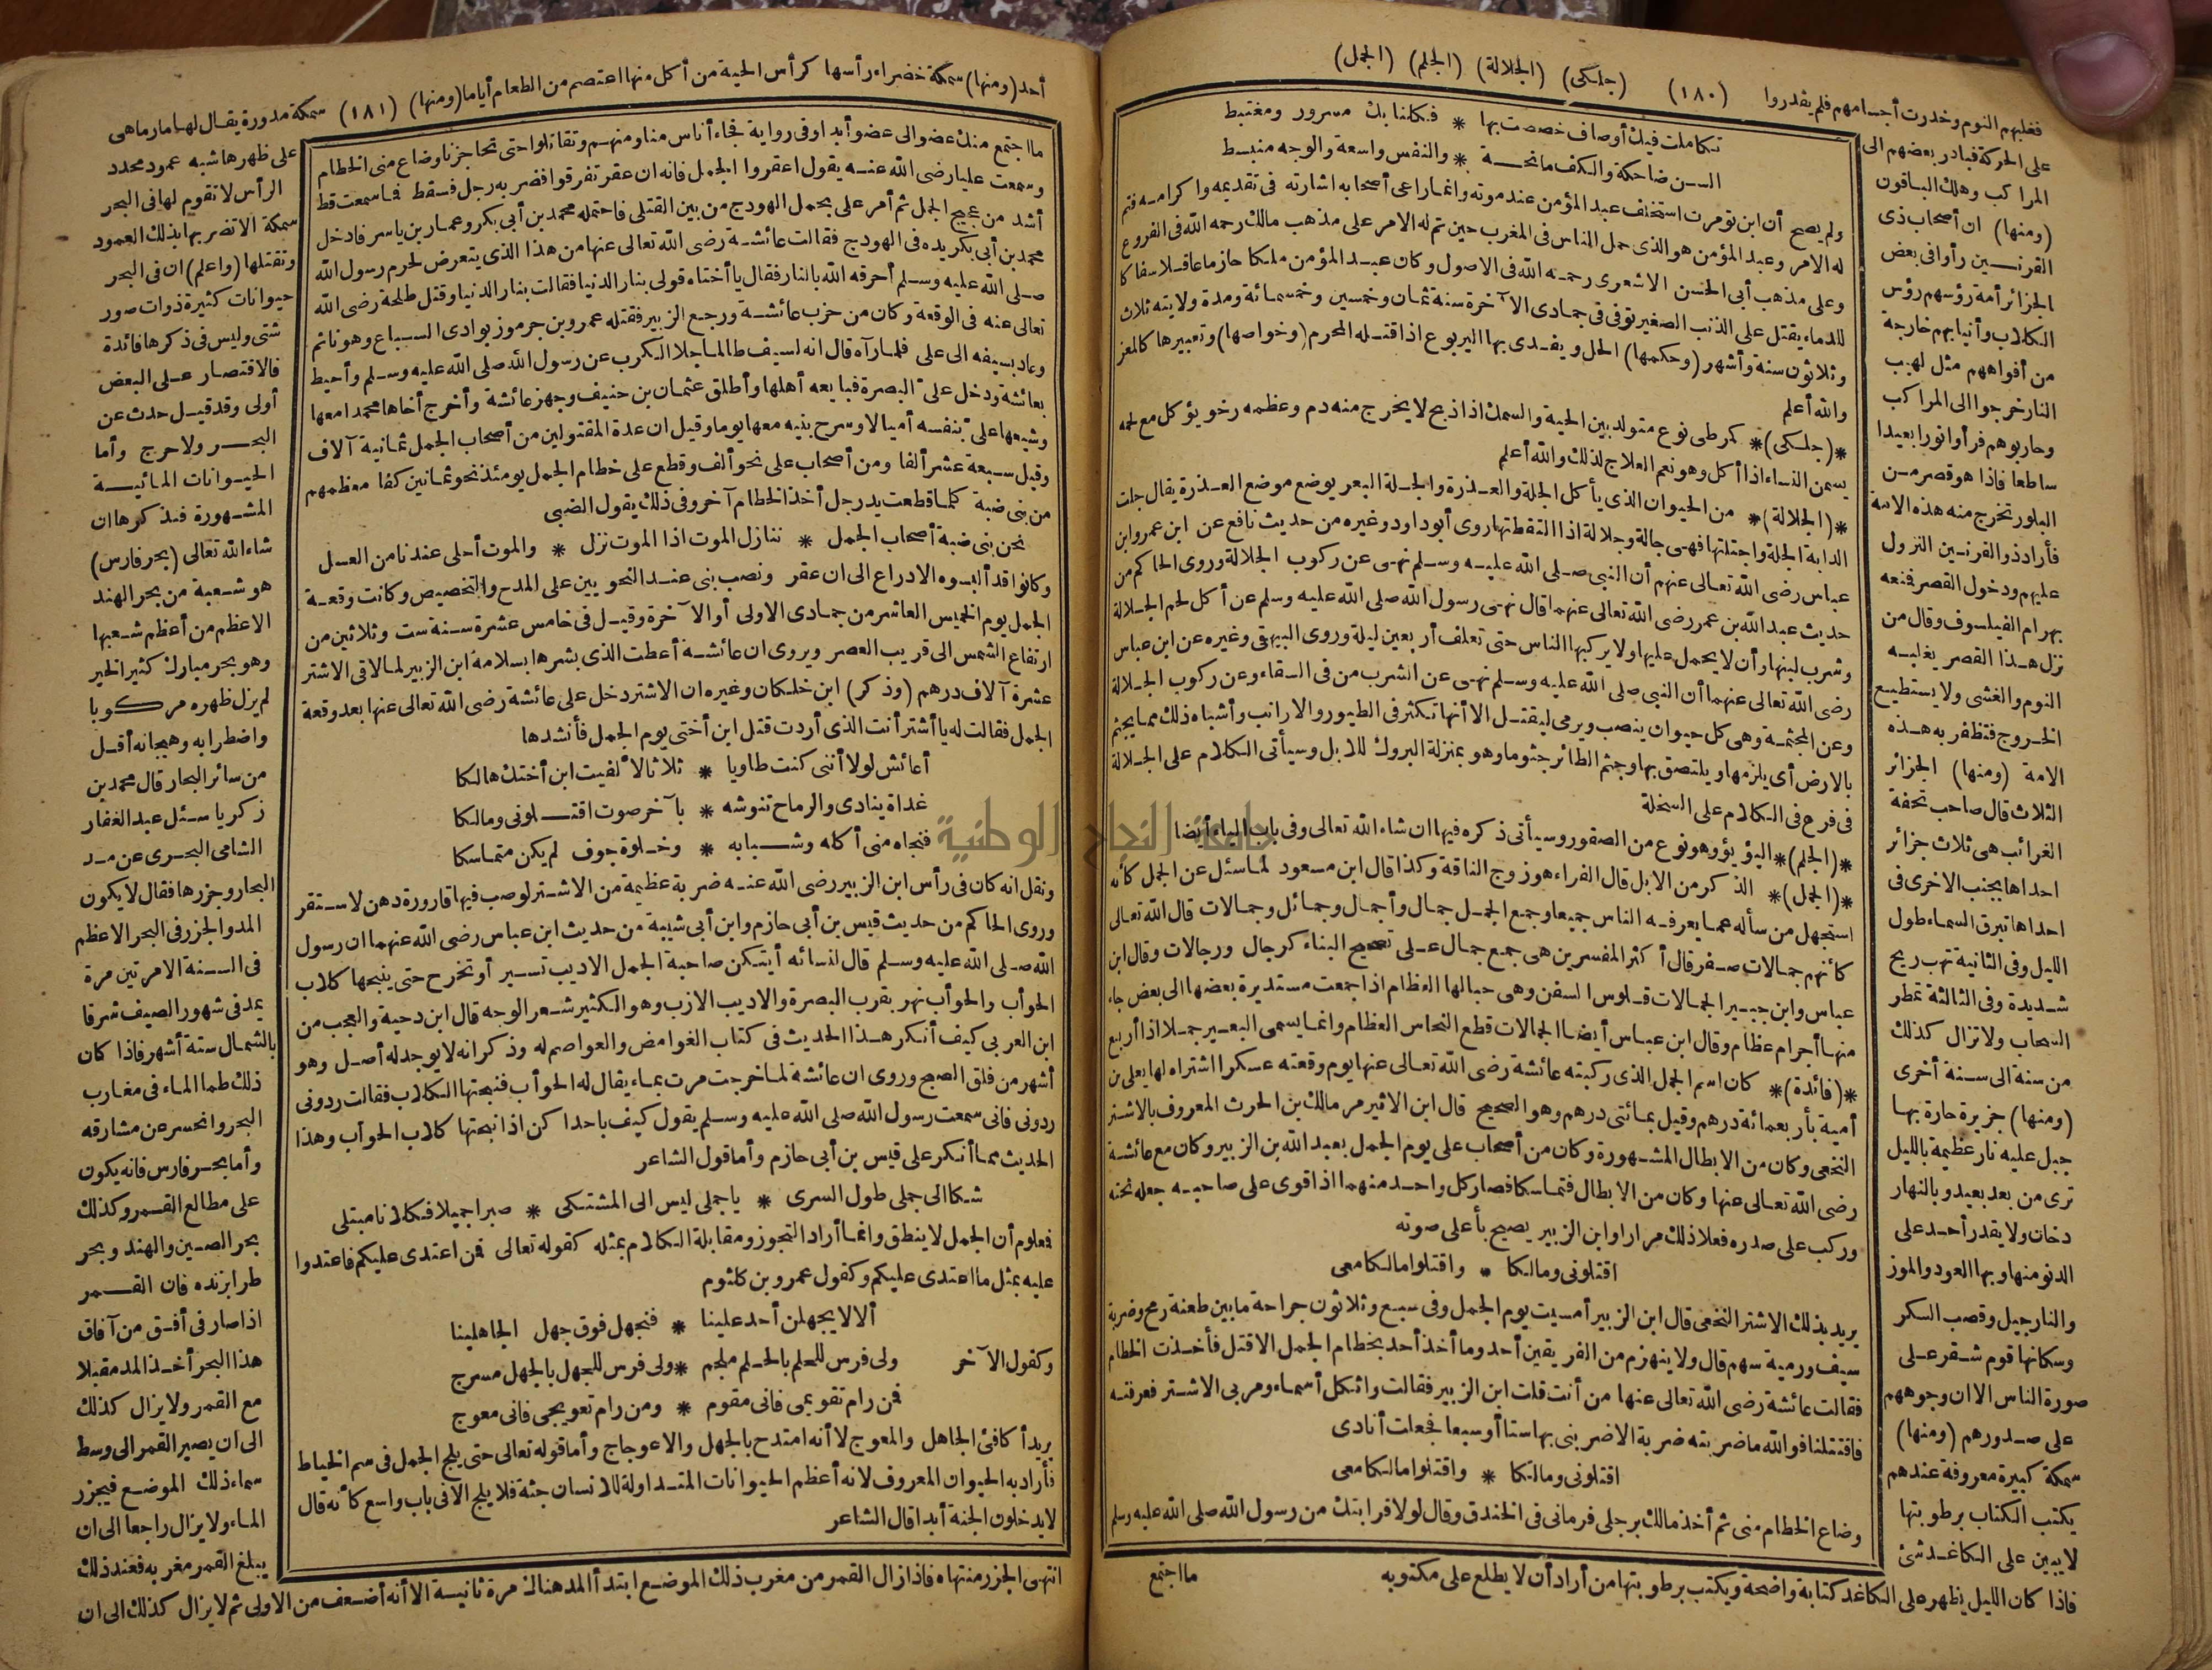 (جلكى) (الجلالة) (الجلم) (الجمل)
(١٨٠)
فغلبهم النوم وخدرت أجسامهم فلم يقدروا
على الحركة فبادر بعضهم الى
المراكب وهلك الباقون
(ومنها) ان أصحاب ذى
القرنين رأوا فى بعض
الجزائر أمة رؤسهم رؤس
الكلاب وأنيابهم خارجة
من أفواههم مثل لهيب
النار خرجوا الى المراكب
وحاربوهم فرأوا نورا بعيدا
ساطعا فاذا هو قصر من
البلور تخرج منه هذه الامة
فأراد ذو القرنين النزول
عليهم ودخول القصر فمنعه
بهرام الفيلسوف وقال من
نزل هذا القصر يغلبه
النوم والغشى ولا يستطيع
الخروج فتظفر به هذه
الامة (ومنها) الجزائر
الثلاث قال صاحب تحفة
الغرائب هى ثلاث جزائر
احداها بجنب الاخرى فى
احداها تبرق السماء طول
الليل وفى الثانية تهب ريح
شديدة وفى الثالثة تمطر
السحاب ولا تزال كذلك
من سنة الى سنة أخرى
(ومنها) جزيرة حارة بها
جبل عليه نار عظيمة بالليل
ترى من بعد بعيد وبالنهار
دخان ولا يقدر أحد على
الدنو منها وبها العود والموز
والنارجيل وقصب السكر
وسكانها قوم شقر على
صورة الناس الا ان وجوههم
على صدورهم (ومنها)
سمكة كبيرة معروفة عندهم
يكتب الكتاب برطوبتها
لا يبين على الكاغد شئ
فاذا كان الليل يظهر على الكاغد كتابة واضحة ويكتب برطوبتها من أراد أن لا يطلع على مكتوبه
تكاملت فيك أوصاف خصصت بها * فكلنا بك مسرور ومغتبط
السن ضاحكة والكف مانحة * والنفس واسعة والوجه منبسط
ولم يصح أن ابن تومرت استخلف عبد المؤمن عند موته وانما راعى أصحابه اشارته فى تقديمه واكرامه فتم
له الامر وعبد المؤمن هو الذى حمل الناس فى المغرب حين تم له الامر على مذهب مالك رحمه الله فى الفروع
وعلى مذهب أبى الحسن الاشعرى رحمه الله فى الاصول وكان عبد المؤمن ملكا حازما عاقلا سفاكا
للدماء يقتل على الذنب الصغير توفى فى جمادى الآخرة سنة ثمان وخمسين وخمسمائة ومدة ولايته ثلاث
وثلاثون سنة وأشهر (وحكمها) الحل ويفدى بها اليربوع اذا قتله المحرم (وخواصها) وتعبيرها كالمعز
والله أعلم
*(جلكى)* كمرطى نوع متولد بين الحية والسمك اذا ذبح لا يخرج منه دم وعظمه رخو يؤكل مع لحمه
يسمن النساء اذا أكل وهو نعم العلاج لذلك والله أعلم
*(الجلالة)* من الحيوان الذى يأكل الجلة والعذرة والجلة البعر يوضع موضع العذرة يقال جلت
الدابة الجلة واجتلتها فهى جالة وجلالة اذا التقطتها روى أبو داود وغيره من حديث نافع عن ابن عمر وابن
عباس رضى الله تعالى عنهم أن النبى صلى الله عليه وسلم نهى عن ركوب الجلالة وروى الحاكم من
حديث عبد الله بن عمر رضى الله تعالى عنهما قال نهى رسول الله صلى الله عليه وسلم عن أكل لحم الجلالة
وشرب لبنها وأن لا يحمل عليها ولا يركبها الناس حتى تعلف أربعين ليلة وروى البيهقى وغيره عن ابن عباس
رضى الله تعالى عنهما أن النبى صلى الله عليه وسلم نهى عن الشرب من فى السقاء وعن ركوب الجلالة
وعن المجثمة وهى كل حيوان ينصب ويرمى ليقتل الا أنها تكثر فى الطيور والارانب وأشباه ذلك مما يجثم
بالارض أى يلزمها ويلتصق بها وجثم الطائر جثوما وهو بمنزلة البروك للابل وسيأتى الكلام على الجلالة
فى فرع فى الكلام على السخلة
*(الجلم)* اليؤيؤ وهو نوع من الصقور وسيأتى ذكره فيها ان شاء الله تعالى وفى باب الياء أيضا
*(الجمل)* الذكر من الابل قال الفراء هو زوج الناقة وكذا قال ابن مسعود لما سئل عن الجمل كأنه
استجهل من سأله عما يعرفه الناس جميعا وجمع الجمل جمال وأجمال وجمائل وجمالات قال الله تعالى
كأنهم جمالات صفر قال أكثر المفسرين هى جمع جمال على تصحيح البناء كرجال ورجالات وقال ابن
عباس وابن جبير الجمالات قلوس السفن وهى حبالها العظام اذا جمعت مستديرة بعضها الى بعض جاء
منها أجرام عظام وقال ابن عباس أيضا الجمالات قطع النحاس العظام وانما يسمى البعير جملا اذا أربع
*(فائدة)* كان اسم الجمل الذى ركبته عائشة رضى الله تعالى عنها يوم وقعته عسكرا اشتراه لها يعلى بن
أمية بأربعمائة درهم وقيل بمائتى درهم وهو الصحيح قال ابن الاثير مر مالك بن الحرث المعروف بالاشتر
النخعى وكان من الابطال المشهورة وكان من أصحاب على يوم الجمل بعبد الله بن الزبير وكان مع عائشة
رضى الله تعالى عنها وكان من الابطال فتماسكا فصار كل واحد منهما اذا قوى على صاحبه جعله تحته
وركب على صدره فعلا ذلك مرارا وابن الزبير يصيح بأعلى صوته
اقتلونى ومالكا * واقتلوا مالكا معى
يريد بذلك الاشتر النخعى قال ابن الزبير أمسيت يوم الجمل وفى سبع وثلاثون جراحة ما بين طعنة رمح وضربة
سيف ورمية سهم قال ولا ينهزم من الفريقين أحد وما أخذ أحد بخطام الجمل الا قتل فأخذت الخطام
فقالت عائشة رضى الله تعالى عنها من أنت قلت ابن الزبير فقالت واثكل أسماء ومر بى الاشتر فعرفته
فاقتتلنا فوالله ما ضربته ضربة الا ضربنى بها ستا أو سبعا فجعلت أنادى
اقتلونى ومالكا * واقتلوا مالكا معى
وضاع الخطام منى ثم أخذ مالك برجلى فرمانى فى الخندق وقال لولا قرابتك من رسول الله صلى الله عليه وسلم
ما اجتمع
(١٨١)
أحد (ومنها) سمكة خضراء رأسها كرأس الحية من أكل منها اعتصم من الطعام أياما (ومنها)
سمكة مدورة يقال لها مارماهى
على ظهرها شبه عمود محدد
الرأس لا تقوم لها فى البحر
سمكة الا تضربها بذلك العمود
وتقتلها (واعلم) ان فى البحر
حيوانات كثيرة ذوات صور
شتى وليس فى ذكرها فائدة
فالاقتصار على البعض
أولى وقد قيل حدث عن
البحر ولا حرج وأما
الحيوانات المائية
المشهورة فنذكرها ان
شاء الله تعالى (بحر فارس)
هو شعبة من بحر الهند
الاعظم من أعظم شعبها
وهو بحر مبارك كثير الخير
لم يزل ظهره مركوبا
واضطرابه وهيجانه أقل
من سائر البحار قال محمد بن
زكريا سئل عبد الغفار
الشامى البحرى عن مد
البحار وجزرها فقال لا يكون
المد والجزر فى البحر الاعظم
فى السنة الا مرتين مرة
يمد فى شهور الصيف شرقا
بالشمال ستة أشهر فاذا كان
ذلك طما الماء فى مغارب
البحر وانحسر عن مشارقه
وأما بحر فارس فانه يكون
على مطالع القمر وكذلك
بحر الصين والهند وبحر
طرابزنده فان القمر
اذا صار فى أفق من آفاق
هذا البحر أخذ المد مقبلا
مع القمر ولا يزال كذلك
الى ان يصير القمر الى وسط
سماء ذلك الموضع فيجزر
الماء ولا يزال راجعا الى ان
يبلغ القمر مغربه فعند ذلك
انتهى الجزر منتهاه فاذا زال القمر من مغرب ذلك الموضع ابتدأ المد هنالك مرة ثانية الا أنه أضعف من الاولى ثم لا يزال كذلك الى ان
ما اجتمع منك عضو الى عضو أبدا وفى رواية فجاء أناس منا ومنهم وتقاتلوا حتى تحاجزنا وضاع منى الخطام
وسمعت عليا رضى الله عنه يقول اعقروا الجمل فانه ان عقر تفرقوا فضربه رجل فسقط فما سمعت قط
أشد من عجيج الجمل ثم أمر على بحمل الهودج من بين القتلى فاحتمله محمد بن أبى بكر وعمار بن ياسر فادخل
محمد بن أبى بكر يده فى الهودج فقالت عائشة رضى الله تعالى عنها من هذا الذى يتعرض لحرم رسول الله
صلى الله عليه وسلم أحرقه الله بالنار فقال يا أختاه قولى بنار الدنيا فقالت بنار الدنيا وقتل طلحة رضى الله
تعالى عنه فى الوقعة وكان من حزب عائشة ورجع الزبير فقتله عمرو بن جرموز بوادى السباع وهو نائم
وعاد بسيفه الى على فلما رآه قال انه لسيف طالما جلا الكرب عن رسول الله صلى الله عليه وسلم وأحيط
بعائشة ودخل على البصرة فبايعه أهلها وأطلق عثمان بن حنيف وجهز عائشة وأخرج أخاها محمدا معها
وشيعها على بنفسه أميالا وسرح بنيه معها يوما وقيل ان عدة المقتولين من أصحاب الجمل ثمانية آلاف
وقيل سبعة عشر ألفا ومن أصحاب على نحو ألف وقطع على خطام الجمل يومئذ نحو ثمانين كفا معظمهم
من بنى ضبة كلما قطعت يد رجل أخذ الخطام آخر وفى ذلك يقول الضبى
نحن بنى ضبة أصحاب الجمل * ننازل الموت اذا الموت نزل * والموت أحلى عندنا من العسل
وكانوا قد ألبسوه الادراع الى ان عقر ونصب بنى عند النحويين على المدح والتخصيص وكانت وقعة
الجمل يوم الخميس العاشر من جمادى الاولى أو الآخرة وقيل فى خامس عشرة سنة ست وثلاثين من
ارتفاع الشمس الى قريب العصر ويروى ان عائشة أعطت الذى بشرها بسلامة ابن الزبير لما لاقى الاشتر
عشرة آلاف درهم (وذكر) ابن خلكان وغيره ان الاشتر دخل على عائشة رضى الله تعالى عنها بعد وقعة
الجمل فقالت له يا أشتر أنت الذى أردت قتل ابن أختى يوم الجمل فأنشدها
أعائش لولا أننى كنت طاويا * ثلاثا لألفيت ابن أختك هالكا
غداة ينادى والرماح تنوشه * بآخر صوت اقتلونى ومالكا
فنجاه منى أكله وشبابه * وخلوة جوف لم يكن متماسكا
ونقل انه كان فى رأس ابن الزبير رضى الله عنه ضربة عظيمة من الاشتر لو صب فيها قارورة دهن لاستقر
وروى الحاكم من حديث قيس بن أبى حازم وابن أبى شيبة من حديث ابن عباس رضى الله عنهما ان رسول
الله صلى الله عليه وسلم قال لنسائه أيتكن صاحبة الجمل الاديب تسير أو تخرج حتى ينبحها كلاب
الحوأب والحوأب نهر بقرب البصرة والاديب الازب وهو الكثير شعر الوجه قال ابن دحية والعجب من
ابن العربى كيف أنكر هذا الحديث فى كتاب الغوامض والعواصم له وذكر انه لا يوجد له أصل وهو
أشهر من فلق الصبح وروى ان عائشة لما خرجت مرت بماء يقال له الحوأب فنبحتها الكلاب فقالت ردونى
ردونى فانى سمعت رسول الله صلى الله عليه وسلم يقول كيف باحداكن اذا نبحتها كلاب الحوأب وهذا
الحديث مما أنكر على قيس بن أبى حازم وأما قول الشاعر
شكا الى جملى طول السرى * يا جملى ليس الى المشتكى * صبرا جميلا فكلانا مبتلى
فعلوم أن الجمل لا ينطق وانما أراد التجوز ومقابلة الكلام بمثله كقوله تعالى فمن اعتدى عليكم فاعتدوا
عليه بمثل ما اعتدى عليكم وكقول عمرو بن كلثوم
ألا لا يجهلن أحد علينا * فنجهل فوق جهل الجاهلينا
وكقول الآخر ولى فرس للحلم بالحلم ملجم * ولى فرس للجهل بالجهل مسرج
فمن رام تقويمى فانى مقوم * ومن رام تعويجى فانى معوج
يريد أكافئ الجاهل والمعوج لا أنه امتدح بالجهل والاعوجاج وأما قوله تعالى حتى يلج الجمل فى سم الخياط
فأراد به الحيوان المعروف لانه أعظم الحيوانات المتداولة للانسان جثة فلا يلج الا فى باب واسع كأنه قال
لا يدخلون الجنة أبدا قال الشاعر
جامعة النجاح الوطنية